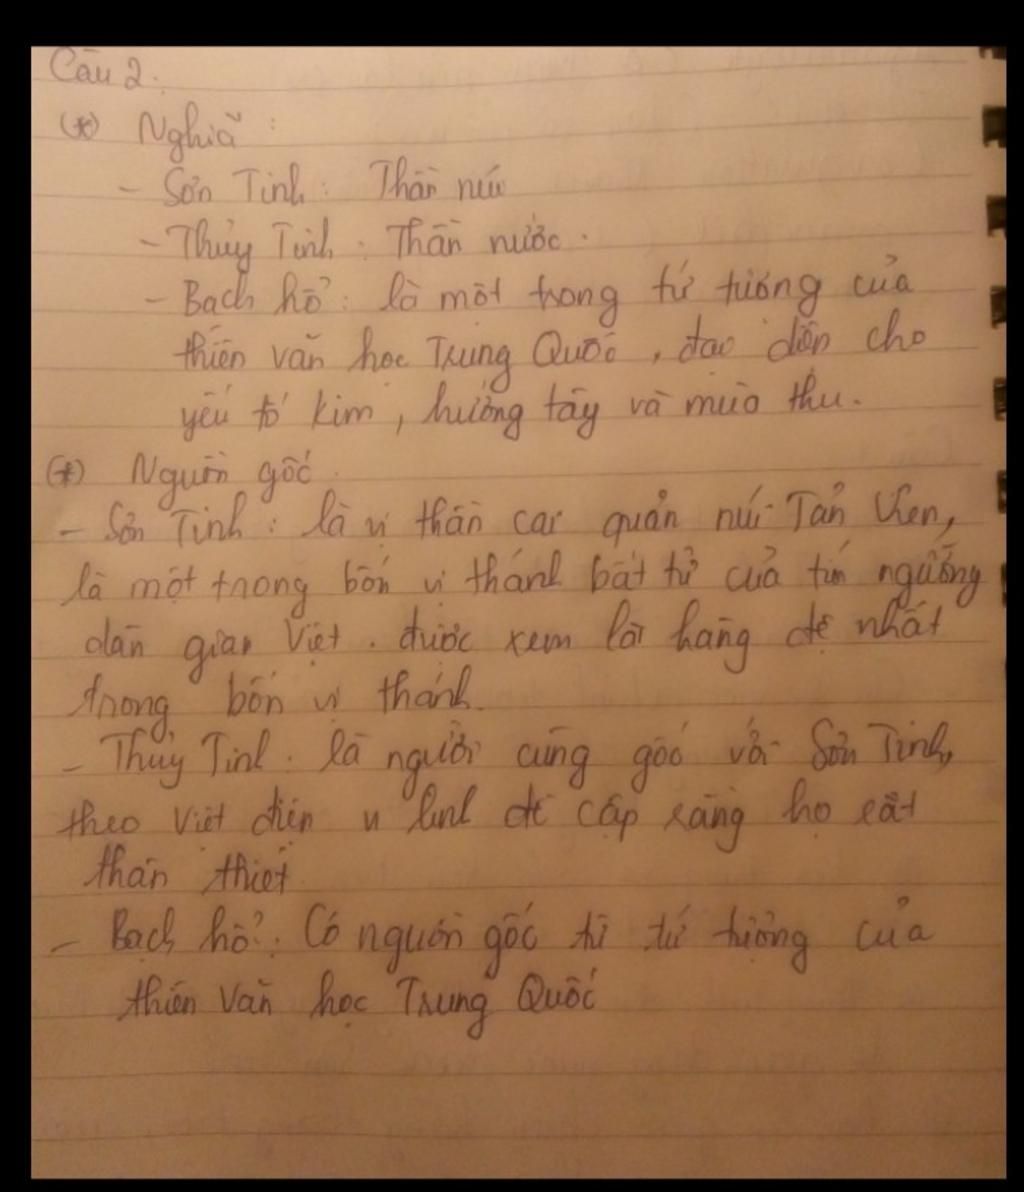 Câu 2.
(*) Nghĩa :
- Sơn Tinh : Thần núi
- Thủy Tinh : Thần nước.
- Bạch hổ : là một trong tứ tượng của
thiên văn học Trung Quốc, đại diện cho
yếu tố kim, hướng tây và mùa thu.
(*) Nguồn gốc.
- Sơn Tinh : là vị thần cai quản núi Tản Viên,
là một trong bốn vị thánh bất tử của tín ngưỡng
dân gian Việt. được xem là hàng đệ nhất
trong bốn vị thánh.
- Thủy Tinh. là người cùng gốc với Sơn Tinh,
theo Việt điện u linh đề cập rằng họ rất
thân thiết
- Bạch hổ : Có nguồn gốc từ tứ tượng của
thiên văn học Trung Quốc